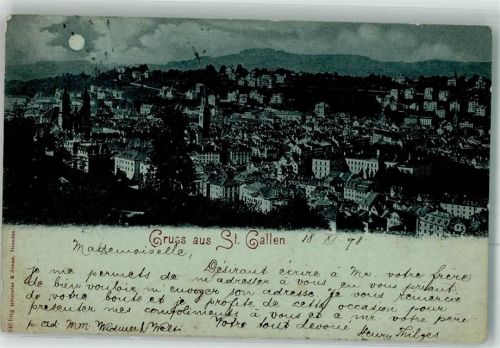 Gruss aus St. Gallen
18 XI 98
Mademoiselle,
Désirant écrire à Mr. votre frère
je me permets de m'adresser à vous en vous priant
de bien vouloir m'envoyer son adresse, je vous remercie
de votre bonté et je profite de cette occasion pour
présenter mes compliments à vous et à mr votre père
p. ad MM. Widmer & Wälti
Votre tout dévoué
Henry